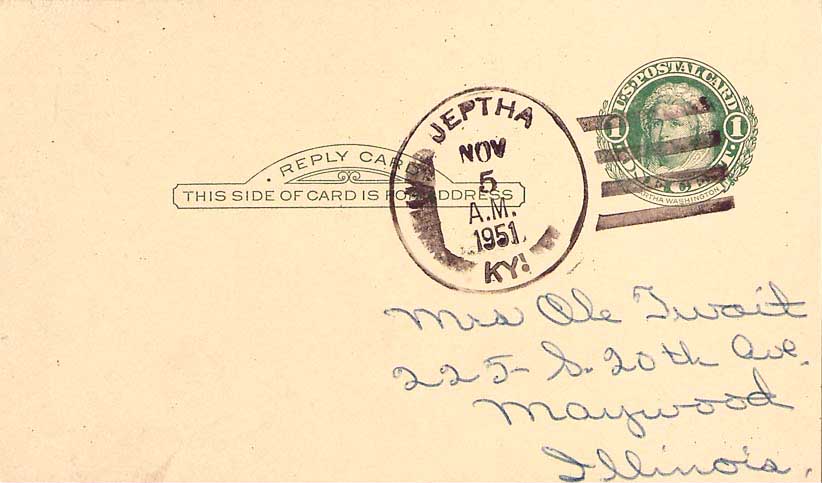 U.S. POSTAL CARD
1 1
MARTHA WASHINGTON
REPLY CARD
THIS SIDE OF CARD IS FOR ADDRESS
JEPTHA
NOV
5
A.M.
1951
KY.
Mrs Ole Twait
225- S. 20th Ave.
Maywood
Illinois.